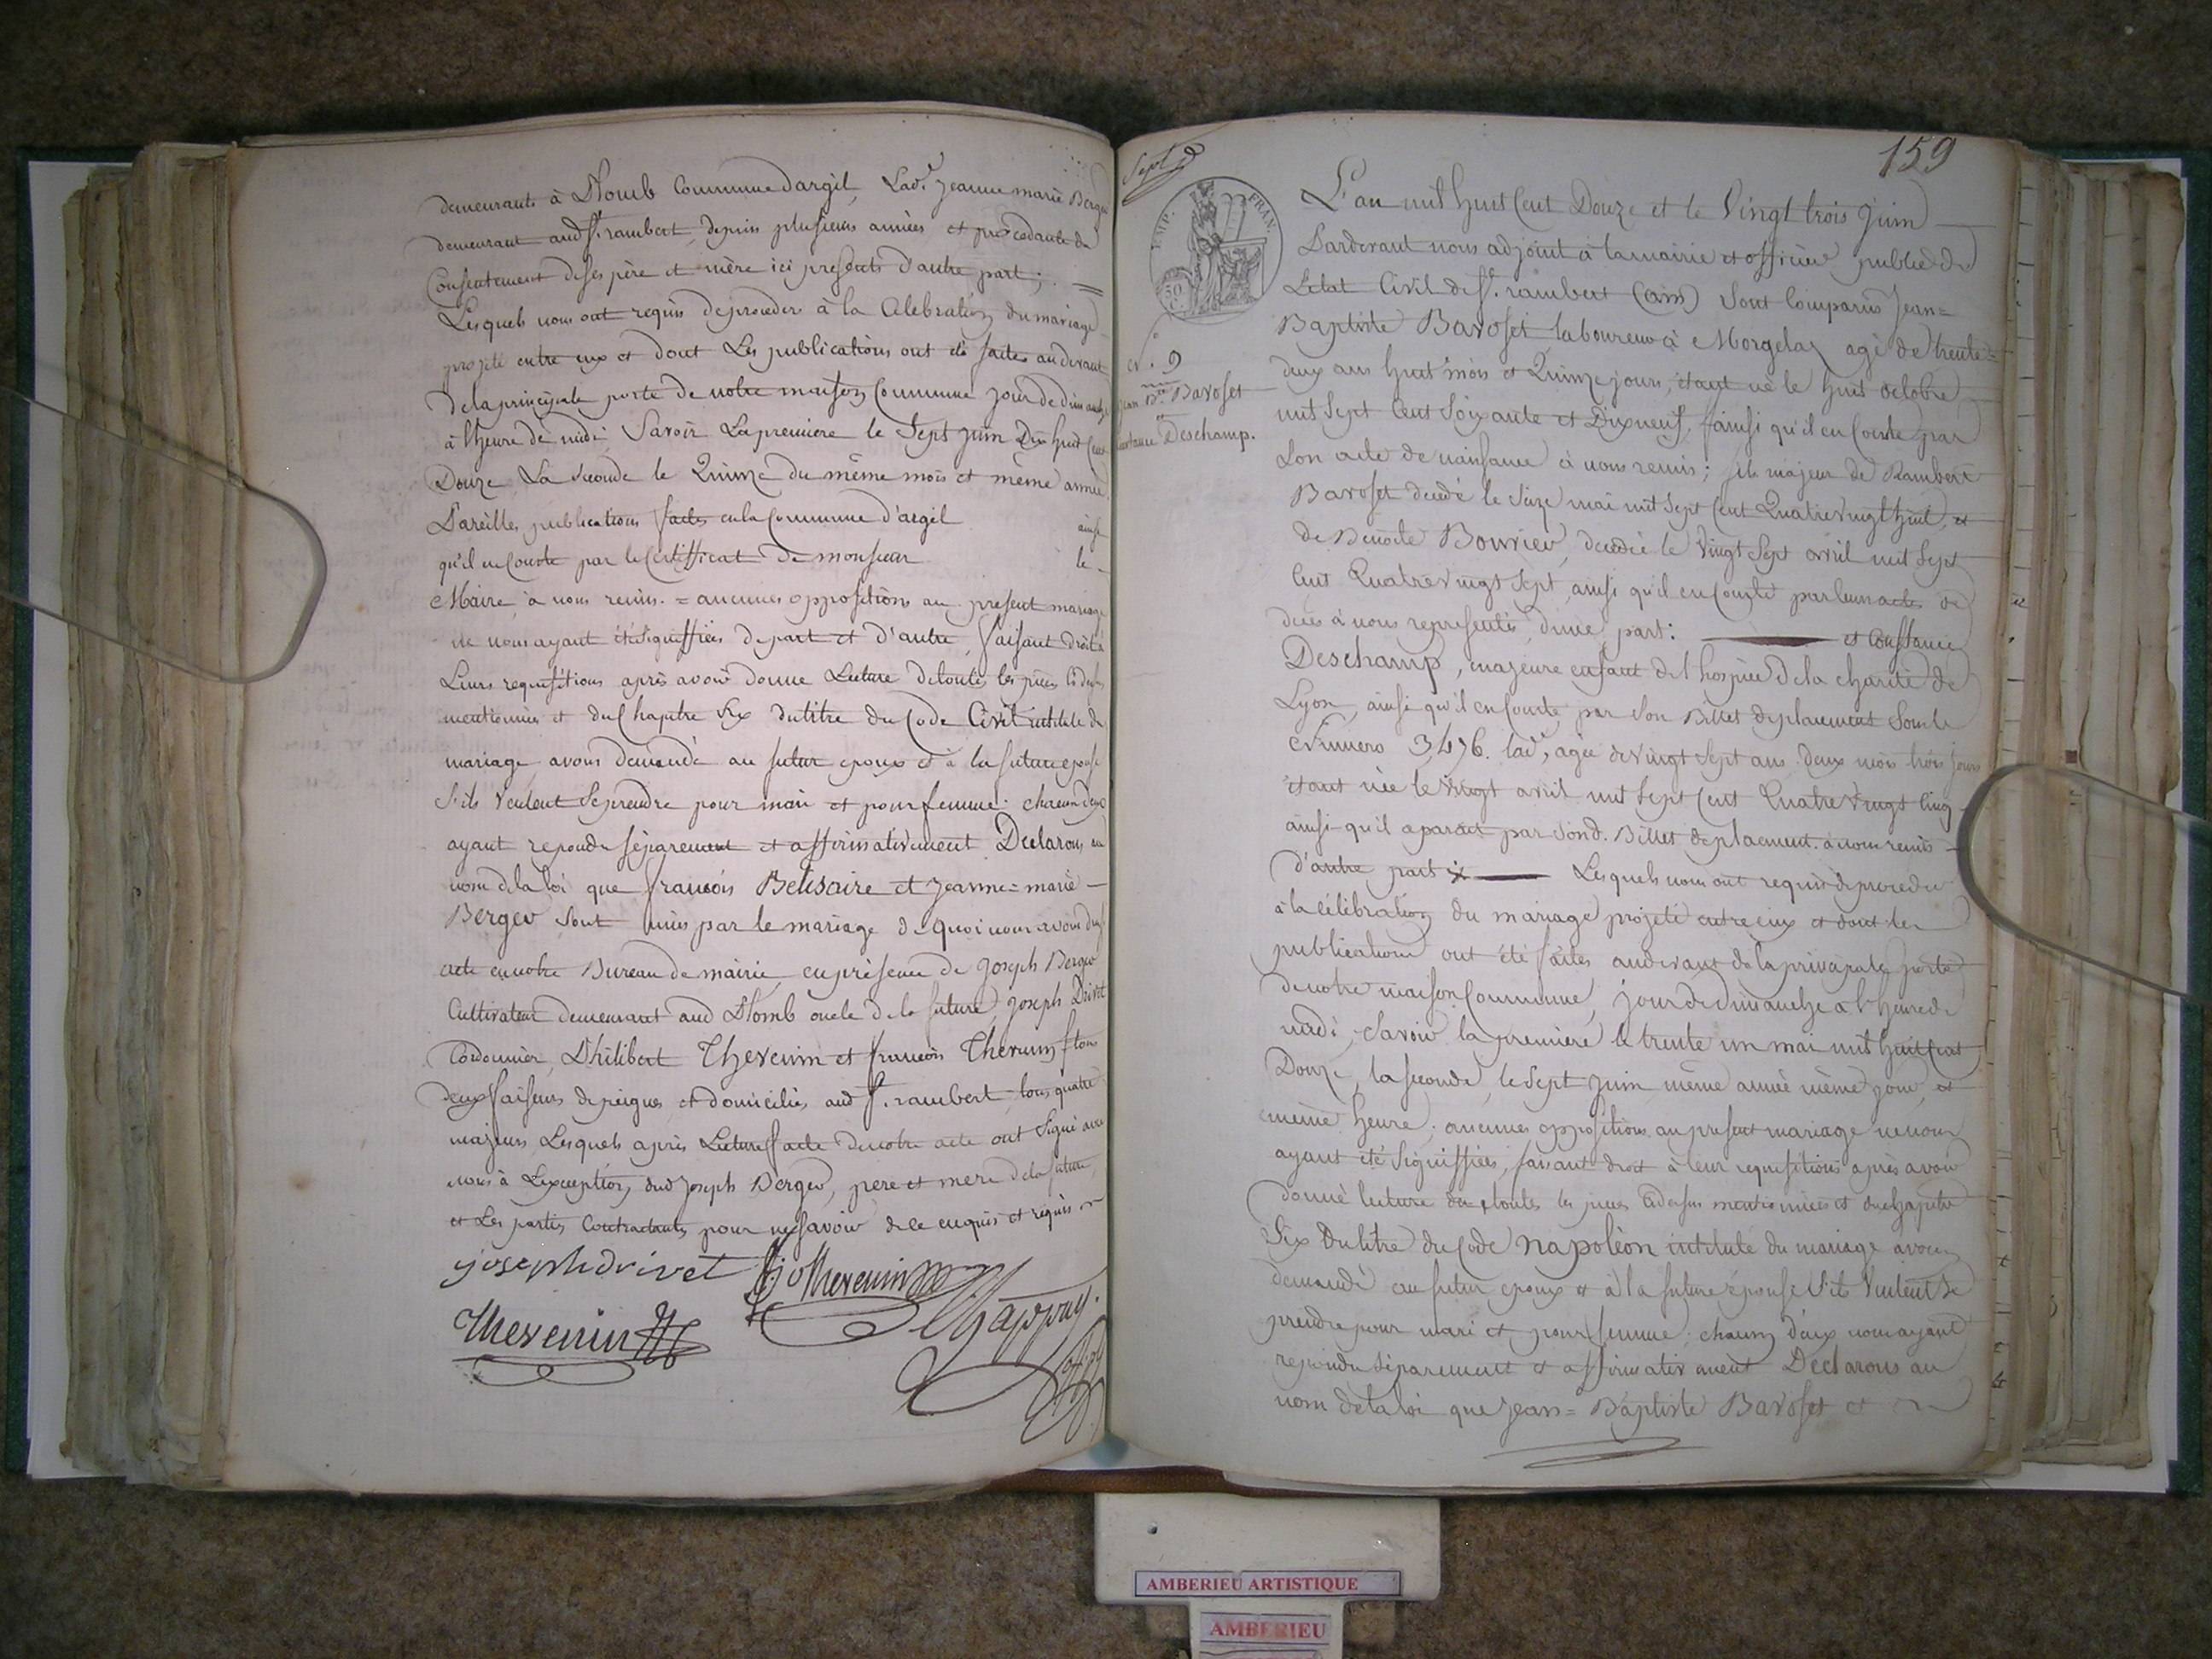 demeurants à Plomb Commune d'argil, Lad.e jeanne marie Berger
demeurant aud St. rambert, depuis plusieurs années et procedante du
Consentement de ses père et mère ici presents d'autre part;
Lesquels nous ont requis de proceder à la Celebration du mariage
projeté entre eux et dont Les publications ont été faites au devant
de la principale porte de notre maison Commune jour de dimanche
à l'heure de midi Savoir La premiere le Sept juin Dix huit Cent
Douze La seconde le Quinze du même mois et même année
Pareilles publications faites en la Commune d'argil ainsi
qu'il en Conste par le Certifficat de monsieur le
Maire à nous remis. = aucunes oppositions au present mariage
ne nous ayant été signiffiées de part et d'autre, faisant droit à
Leurs requisitions après avoir donné Lecture de toutes les pièces ci dessus
mentionnées et du Chapitre Six du titre du Code Civil intitulé du
mariage, avons demandé au futur epoux et à la future epouse
S'ils veulent se prendre pour mari et pour femme: chacun d'eux
ayant repondu séparement et affirmativement Declarons au
nom de la loi que francois Belisaire et Jeanne = marie
Berger sont unis par le mariage de quoi nous avons dressé
acte en notre Bureau de mairie, en présence de Joseph Berger
Cultivateur demeurant aud Plomb oncle de la future, Joseph Drivet
Cordonnier, Philibert Thevenin et francois Thevenin tous
deux faiseurs de peignes et domiciliés aud St. rambert, tous quatre
majeurs Lesquels après Lecture faite de notre acte ont Signé avec
nous à L'exception dud Joseph Berger, père et mère de la future,
et Les parties Contractantes pour ne savoir de ce enquis et requis
joseph drivet fjo thevenin
Thevenin Chappuy
adjt
159
Sept 9
EMP. FRAN.
N.o 9
jean Bte. Bavoset
Constance Deschamp.
L'an mil huit Cent Douze et le Vingt trois juin
Pardevant nous adjoint à la mairie et officier public de
L'etat Civil de St. rambert (ain) Sont Comparus Jean=
Baptiste Bavoset laboureur à Morgelaz agé de trente=
deux ans huit mois et Quinze jours, étant né le huit octobre
mil Sept Cent Soixante et Dix neuf, ainsi qu'il en Conste par
Son acte de naissance à nous remis; fils majeur de Rambert
Bavoset decedé le Seize mai mil Sept Cent Quatre Vingt huit, et
de Benoite Bouvier, decedée le Vingt Sept avril mil Sept
Cent Quatre Vingt Sept, ainsi qu'il en Conste par leurs actes de
decès à nous representés, d'une part: et Constance
Deschamp, majeure enfant de l'hospice de la charité de
Lyon, ainsi qu'il en Conste par Son Billet de placement Sous le
Numero 3476. lad.e, agée de Vingt Sept ans deux mois trois jours
étant née le Vingt avril mil Sept Cent Quatre Vingt Cinq
ainsi qu'il aparait par Sond. Billet de placement. à nous remis
d'autre part; Lesquels nous ont requis de proceder
à la célébration du mariage projeté entre eux et dont les
publications ont été faites au devant de la principale porte
de notre maison Commune, jour de dimanche à l'heure de
midi, Savoir la première le trente un mai mil huit Cent
Douze, la Seconde, le Sept juin même année même jour, et
même heure, aucunes oppositions au present mariage ne nous
ayant été Signiffiées, faisant droit à leur requisitions après avoir
donné lecture de toutes les pièces Cidessus mentionnées et du Chapitre
Six du titre du Code napoléon intitulé du mariage avons
demandé au futur epoux et à la future épouse S'ils Veulent se
prendre pour mari et pour femme: chacun d'eux nous ayant
repondu Séparement et affirmativement Declarons au
nom de la loi que Jean = Baptiste Bavoset et
AMBERIEU ARTISTIQUE
AMBERIEU